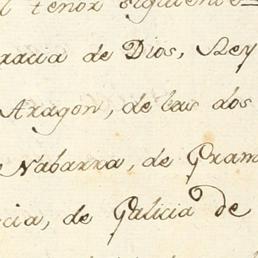 l tenor siguiente
racia de Dios, Rey
Aragon, de las dos
Nabarra, de Grana
cia, de Galicia de